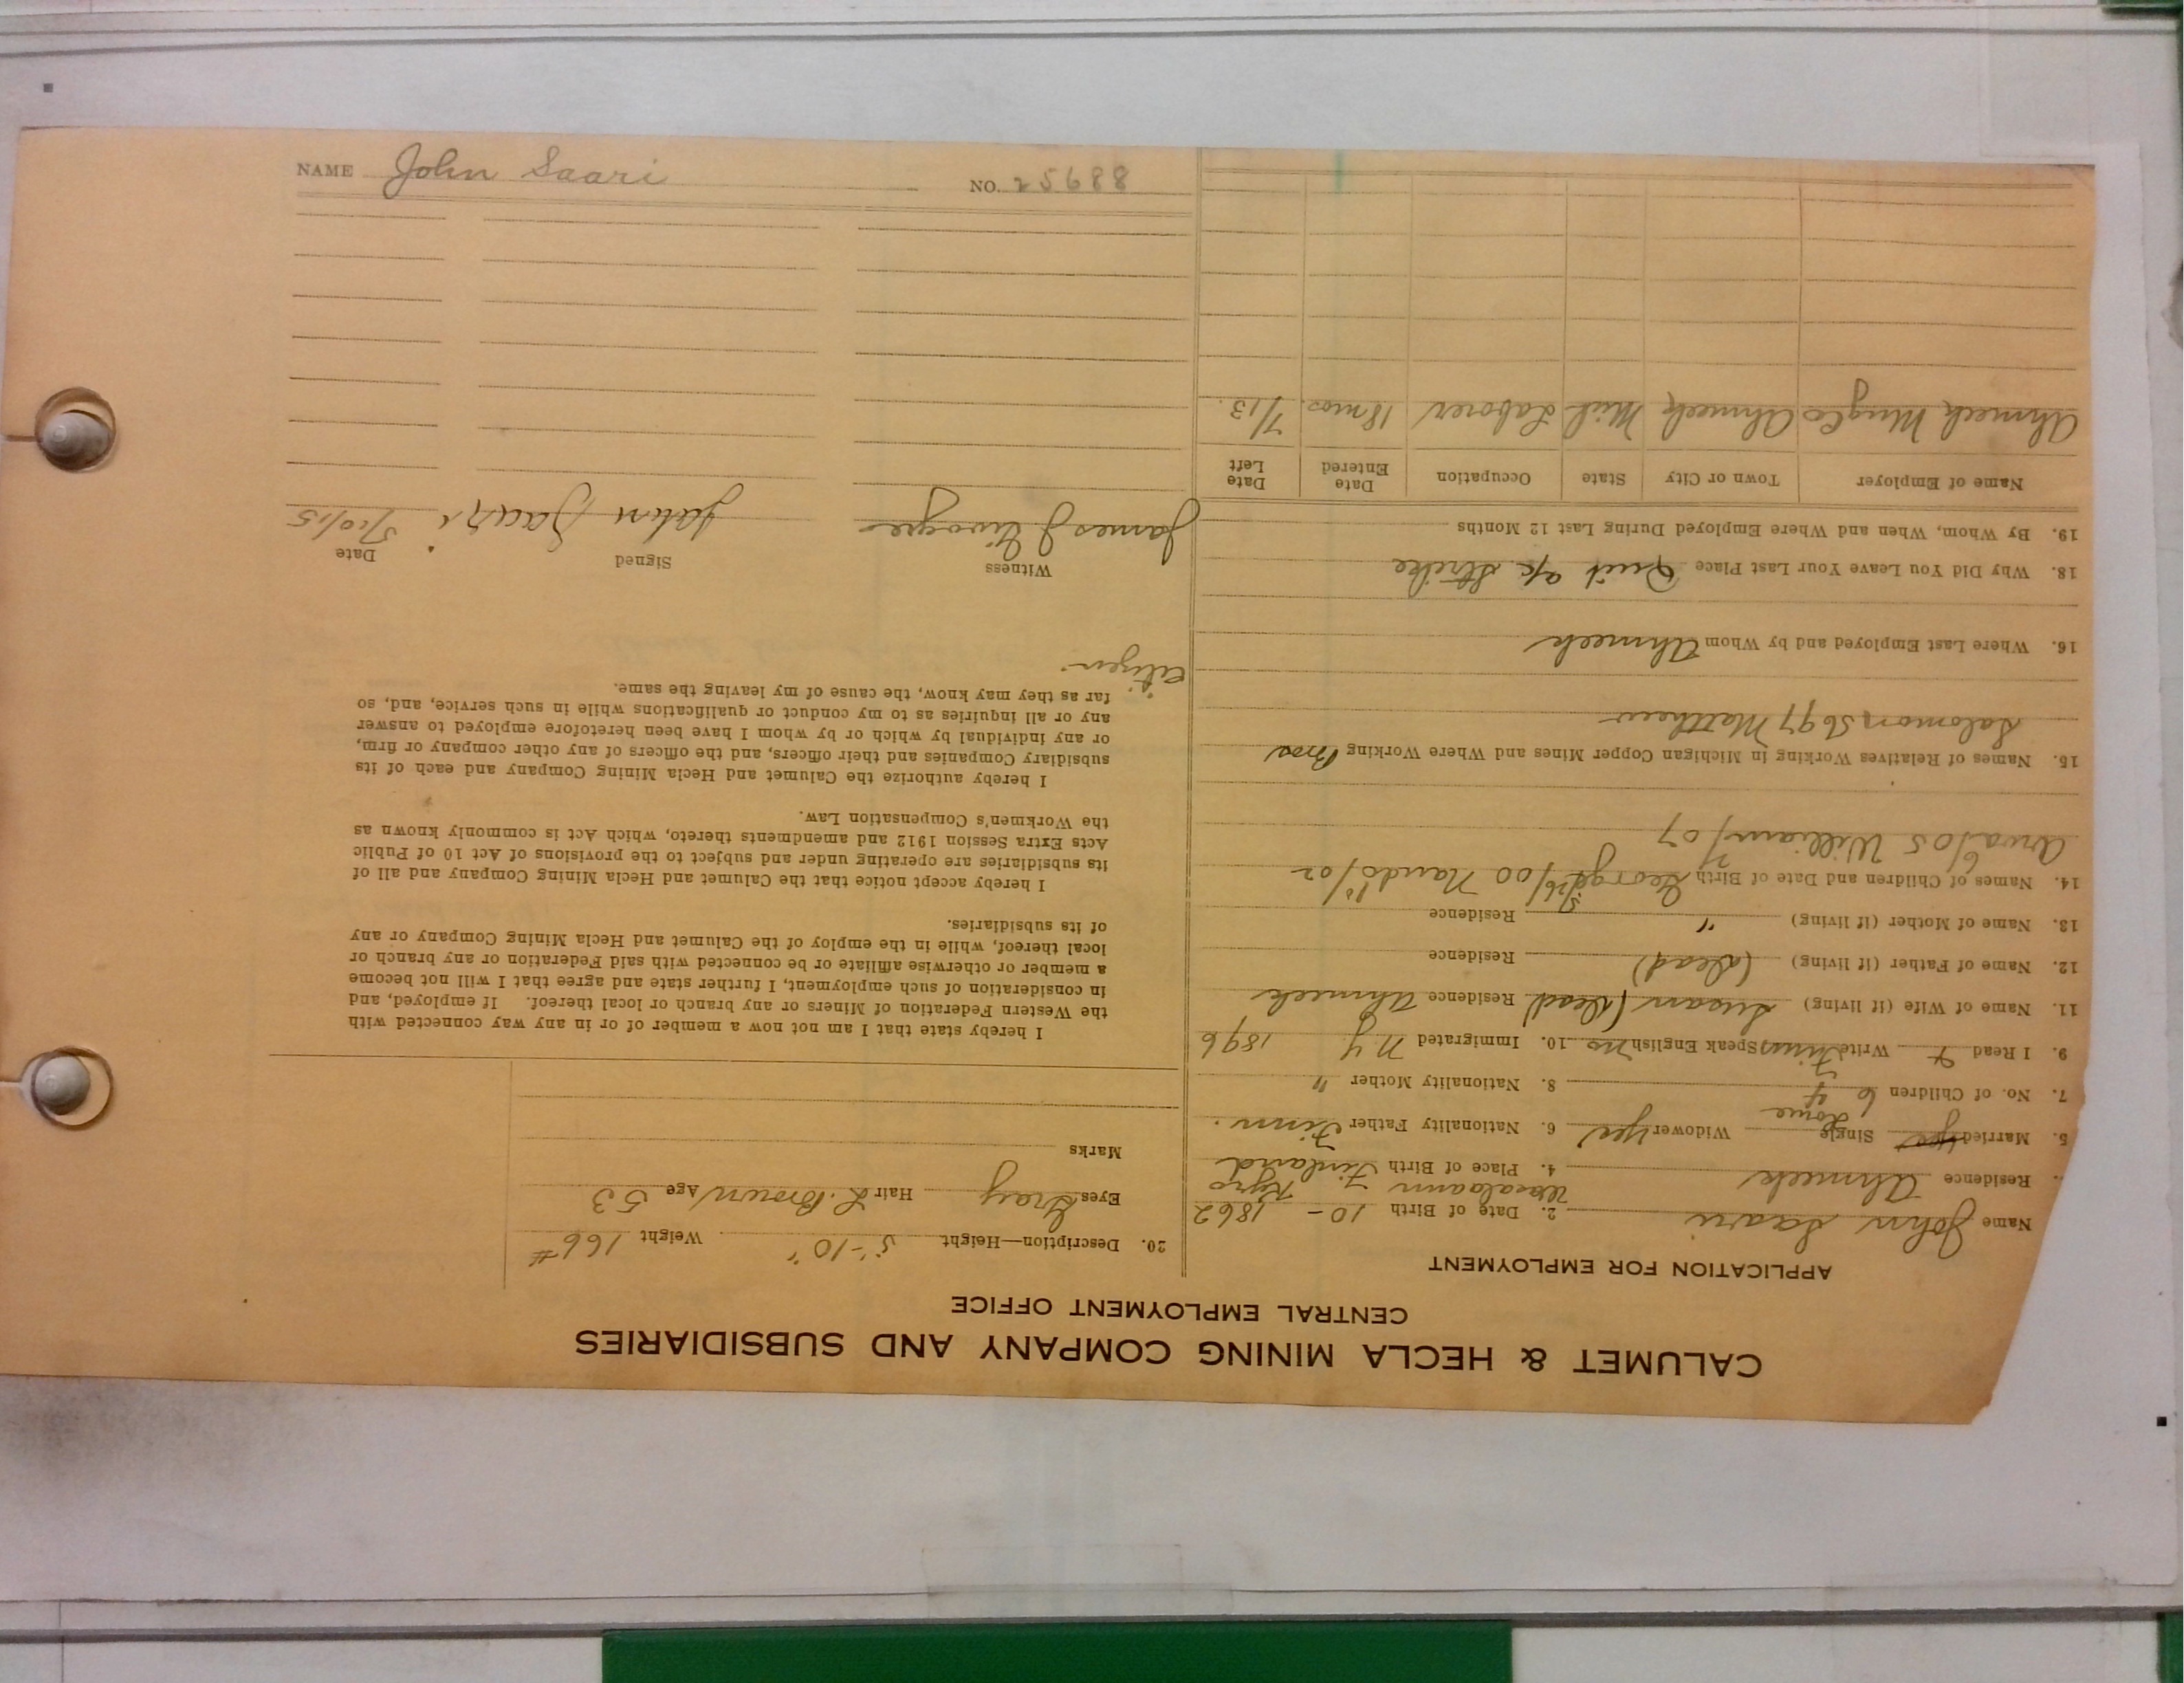 CALUMET & HECLA MINING COMPANY AND SUBSIDIARIES
CENTRAL EMPLOYMENT OFFICE
APPLICATION FOR EMPLOYMENT
Name John Saari 2. Date of Birth 10 - 1862
Residence Ahmeek 4. Place of Birth Finland Kyro
5. Married Yes Single Widower Yes 6. Nationality Father Finn.
7. No. of Children 6 4 Home 8. Nationality Mother "
9. I Read & Write Finn Speak English no 10. Immigrated N.Y. 1896
11. Name of Wife (if living) Susan (Dead) Residence Ahmeek
12. Name of Father (if living) (Dead) Residence
13. Name of Mother (if living) " Residence
14. Names of Children and Date of Birth George /00 /02
6/05 William /07
15. Names of Relatives Working in Michigan Copper Mines and Where Working Bros
Salomon 5697 Matthew
16. Where Last Employed and by Whom Ahmeek
18. Why Did You Leave Your Last Place Quit a/c Strike
19. By Whom, When and Where Employed During Last 12 Months
Name of Employer Town or City State Occupation Date Entered Date Left
Ahmeek Mng Co Ahmeek Mich Laborer 18 mos. 7/13.
20. Description—Height 5'-10" Weight 166#
Eyes Gray Hair L. Brown Age 53
Marks
I hereby state that I am not now a member of or in any way connected with
the Western Federation of Miners or any branch or local thereof. If employed, and
in consideration of such employment, I further state and agree that I will not become
a member or otherwise affiliate or be connected with said Federation or any branch or
local thereof, while in the employ of the Calumet and Hecla Mining Company or any
of its subsidiaries.
I hereby accept notice that the Calumet and Hecla Mining Company and all of
its subsidiaries are operating under and subject to the provisions of Act 10 of Public
Acts Extra Session 1912 and amendments thereto, which Act is commonly known as
the Workmen's Compensation Law.
I hereby authorize the Calumet and Hecla Mining Company and each of its
subsidiary Companies and their officers, and the officers of any other company or firm,
or any individual by which or by whom I have been heretofore employed to answer
any or all inquiries as to my conduct or qualifications while in such service, and, so
far as they may know, the cause of my leaving the same.
Citizen
Witness Signed Date
James J John Saari 5/10/15
NAME John Saari NO. 25688